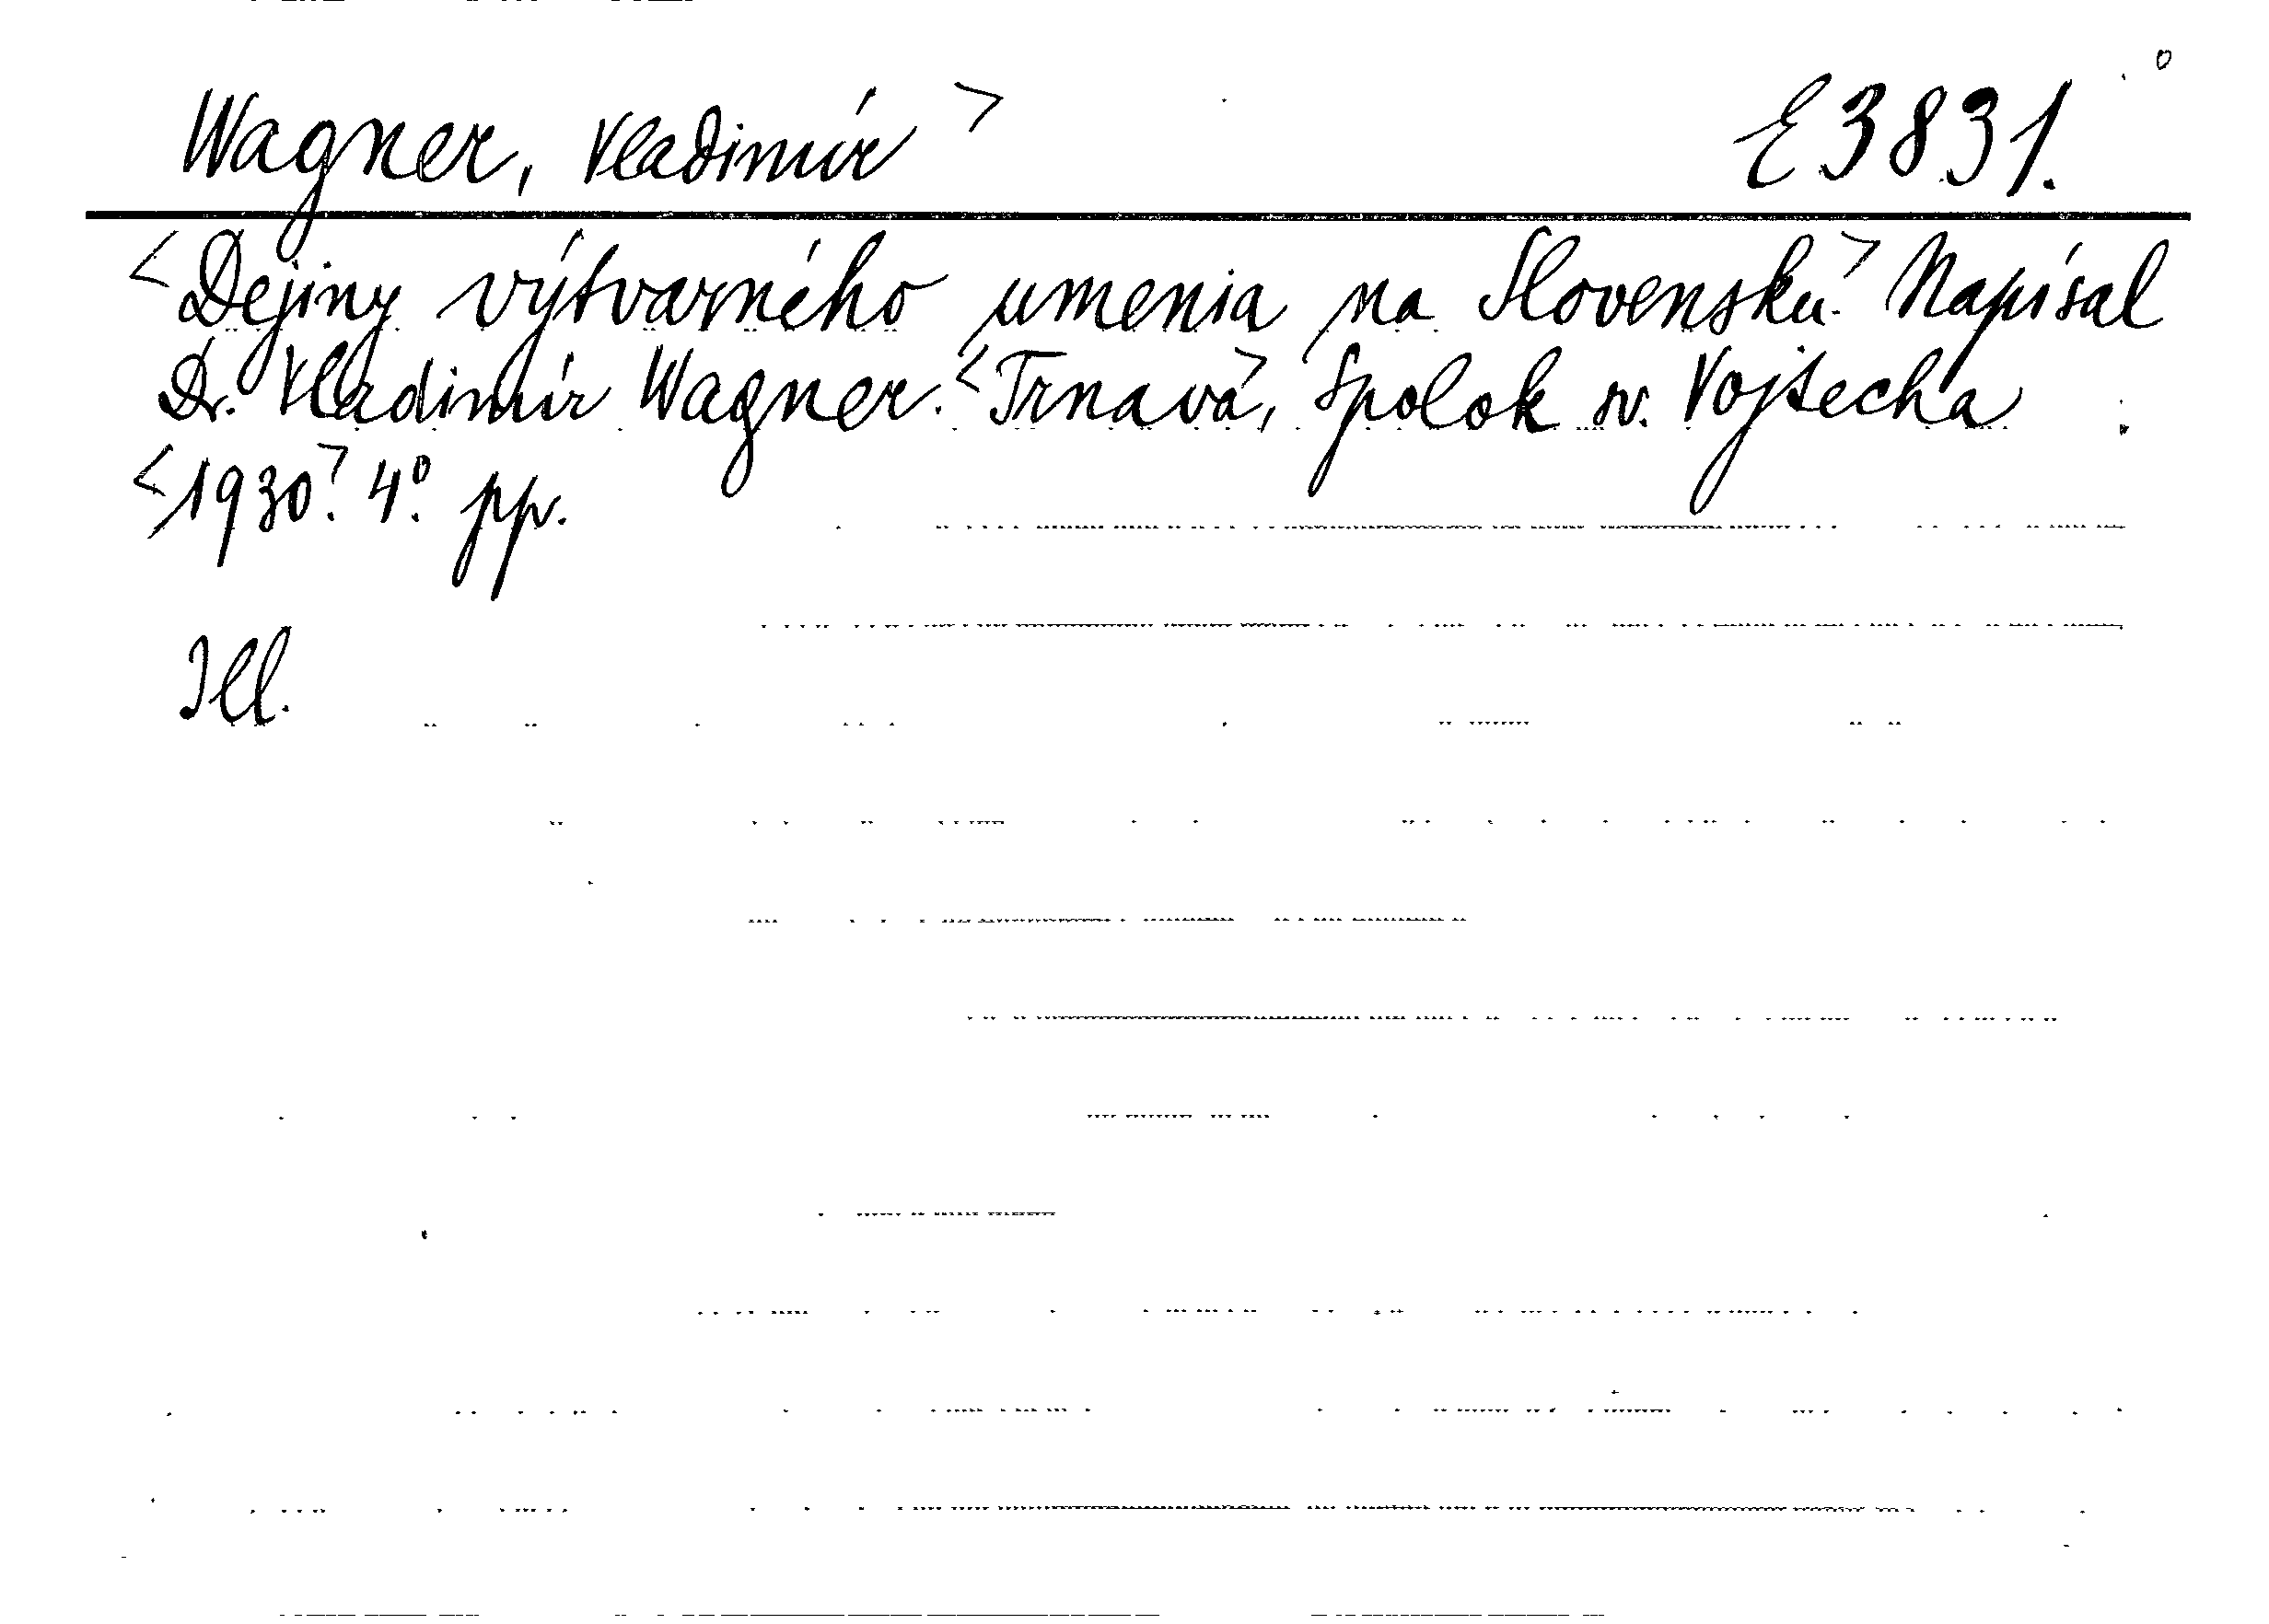 Wagner, Vladimír > E 3831.
<Dejiny výtvarného umenia na Slovensku.> Napísal
Dr. Vladimír Wagner. <Trnava>, Spolok sv. Vojtecha
<1930>. 4º. pp.
Ill.